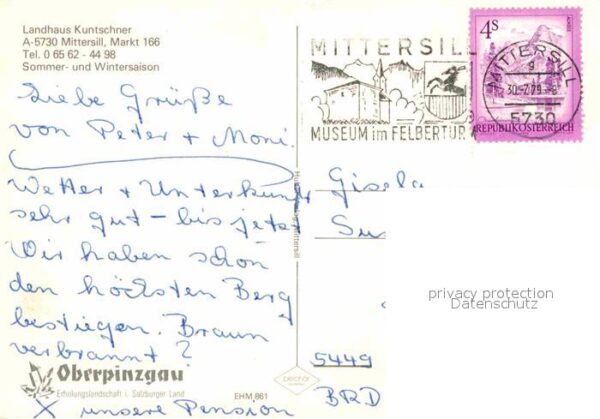 Landhaus Kuntschner
A-5730 Mittersill, Markt 166
Tel. 0 65 62 - 44 98
Sommer- und Wintersaison
Liebe Grüße
von Peter + Moni.
Wetter + Unterkunft
sehr gut - bis jetzt
Wir haben schon
den höchsten Berg
bestiegen. Braun
verbrannt?
Oberpinzgau
Erholungslandschaft i. Salzburger Land
EHM 861
X unsere Pension
MITTERSILL
MUSEUM im FELBERTUR
4S
REPUBLIK ÖSTERREICH
MITTERSILL
30.-7.79
5730
Gisela
Su
privacy protection
Datenschutz
5449
BRD